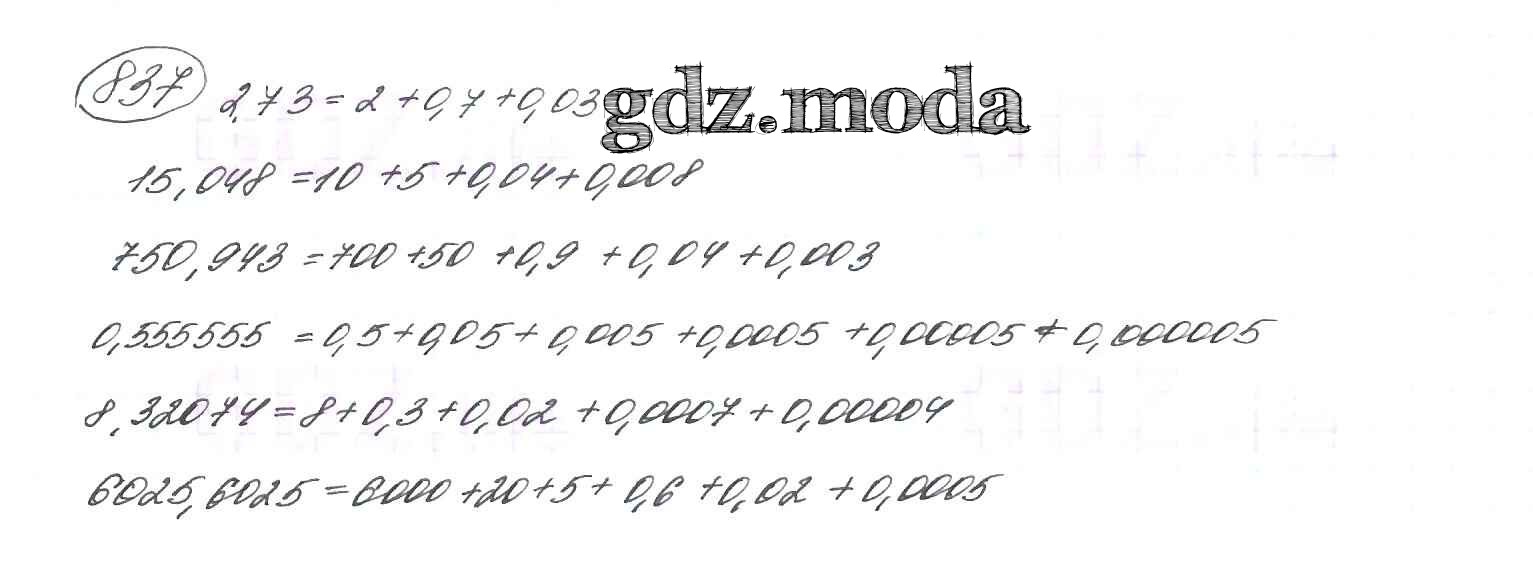 837 2,73 = 2 + 0,7 + 0,03 gdz.moda
15,048 = 10 + 5 + 0,04 + 0,008
750,943 = 700 + 50 + 0,9 + 0,04 + 0,003
0,555555 = 0,5 + 0,05 + 0,005 + 0,0005 + 0,00005 + 0,000005
8,32074 = 8 + 0,3 + 0,02 + 0,0007 + 0,00004
6025,6025 = 6000 + 20 + 5 + 0,6 + 0,02 + 0,0005